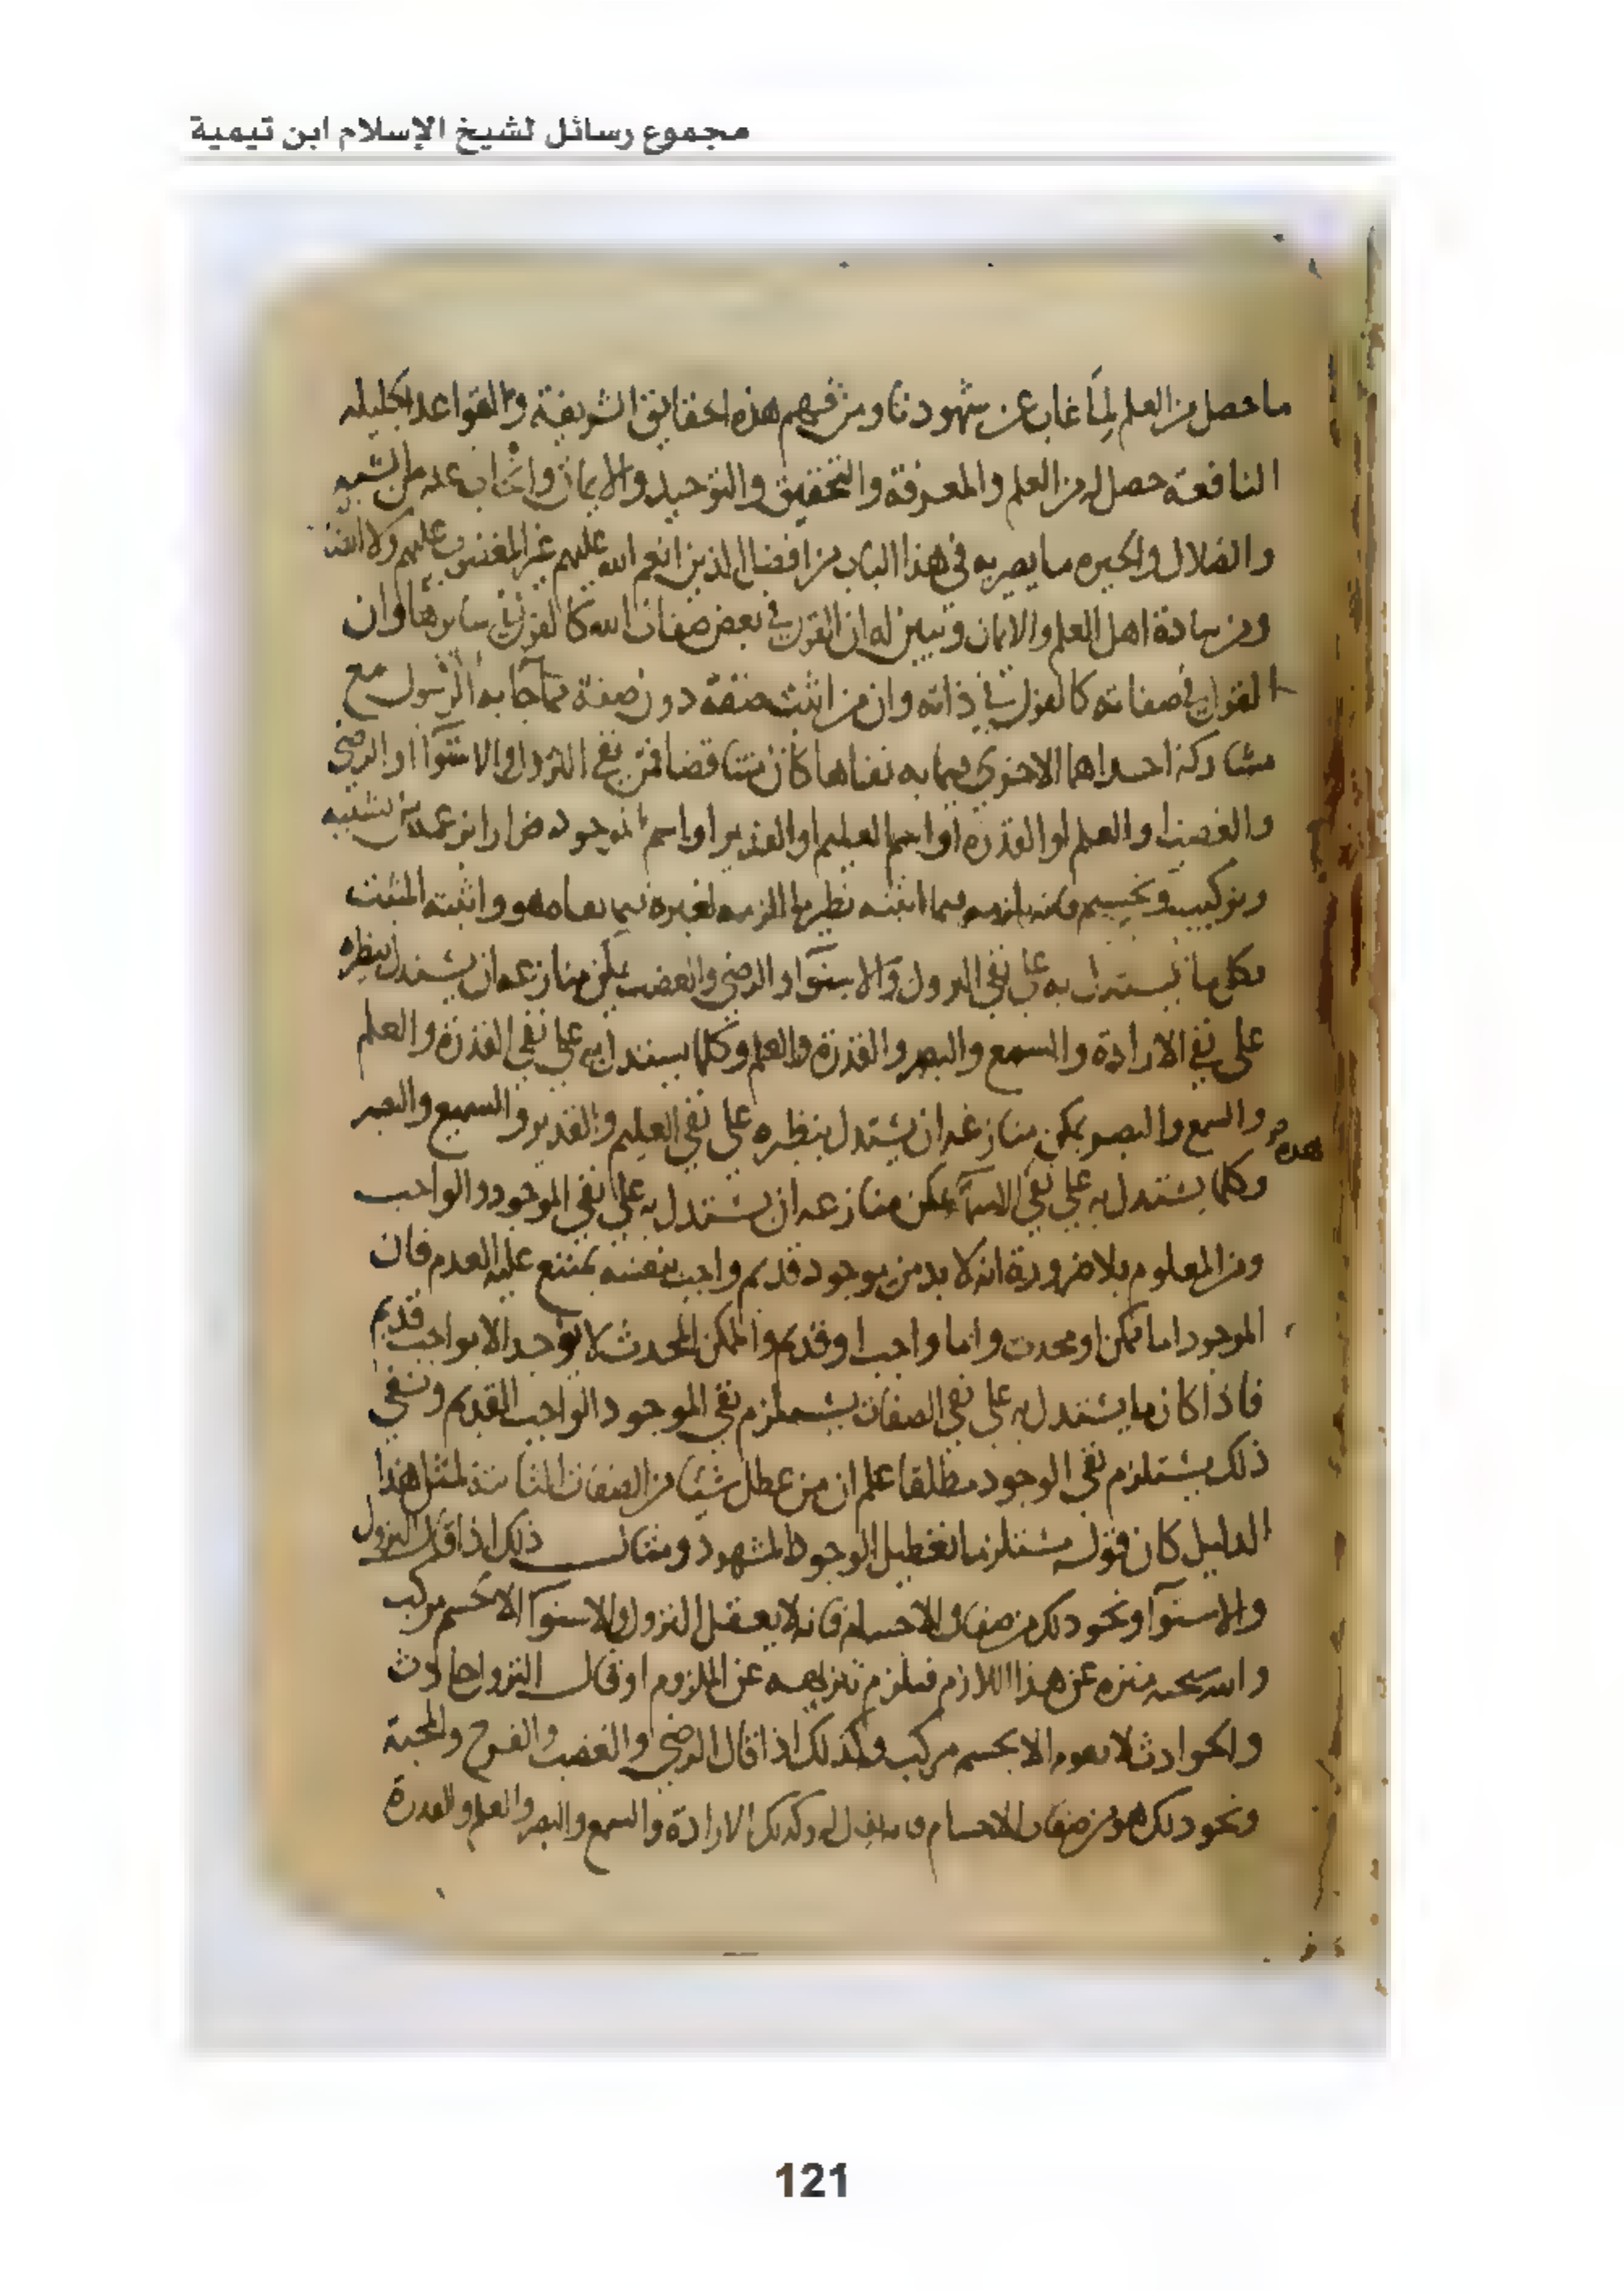 مجموع رسائل لشيخ الإسلام ابن تيمية
ما حصل من العلم لما غاب عن شهودنا ومن فهم هذه الحقايق الشريفة والقواعد الجليله
النافعة حصل له من العلم والمعرفة والتحقيق والتوحيد والايمان وانجاب عنه من الشبه
والضلال والحيره ما يصير به في هذا الباب من افضل الذين انعم الله عليهم غير المغضوب عليهم ولا الضا
ومن سادة اهل العلم والايمان وتبين له ان القول في بعض صفات الله كالقول في سايرها وان
القول في صفاته كالقول في ذاته وان من اثبت صفة دون صفة مما جا به الرسول مع
مشاركة احداهما الاخرى فيما به نفاها كان متناقضا فمن نفى النزول والاستوا او الرضى
والغضب او العلم او القدره او اسم العليم او القدير او اسم الموجود فرارا بزعمه من تشبيه
وتركيب وتجسيم فانه يلزمه فيما اثبته نظير ما الزمه لغيره فيما نفاه هو واثبته المثبت
فكل ما يستدل به على نفي النزول والاستوا والرضى والغضب يمكن منازعه ان يستدل بنظيره
على نفي الارادة والسمع والبصر والقدرة والعلم وكلما يستدل به على نفي القدرة والعلم
والسمع والبصر يمكن منازعه ان يستدل بنظيره على نفي العليم والقدير والسميع والبصير
وكلما يستدل به على نفي هذه الاسما يمكن منازعه ان يستدل به على نفي الموجود والواجب
ومن المعلوم بالضرورة انه لا بد من موجود قديم واجب بنفسه يمتنع عليه العدم فان
الموجود اما ممكن او محدث واما واجب او قديم والممكن المحدث لا يوجد الا بواجب قديم
فاذا كان ما يستدل به على نفي الصفات يستلزم نفي الموجود الواجب القديم ونفي
ذلك يستلزم نفي الوجود مطلقا علم ان من عطل شيئا من الصفات الثابتة لمثل هذا
الدليل كان قوله مستلزما تعطيل الوجود المشهود ومثال ذلك اذا قال النزول
والاستوا ونحو ذلك من صفات الاجسام فانه لا يعقل النزول والاستوا الا لجسم مركب
والله سبحنه منزه عن هذا اللازم فيلزم تنزيهه عن الملزوم او قال النزول حادث
والحوادث لا تقوم الا بجسم مركب وكذلك اذا قال الرضى والغضب والفرح والمحبة
ونحو ذلك هو من صفات الاجسام فانه يقال له وكذلك الارادة والسمع والبصر والعلم والقدرة
121